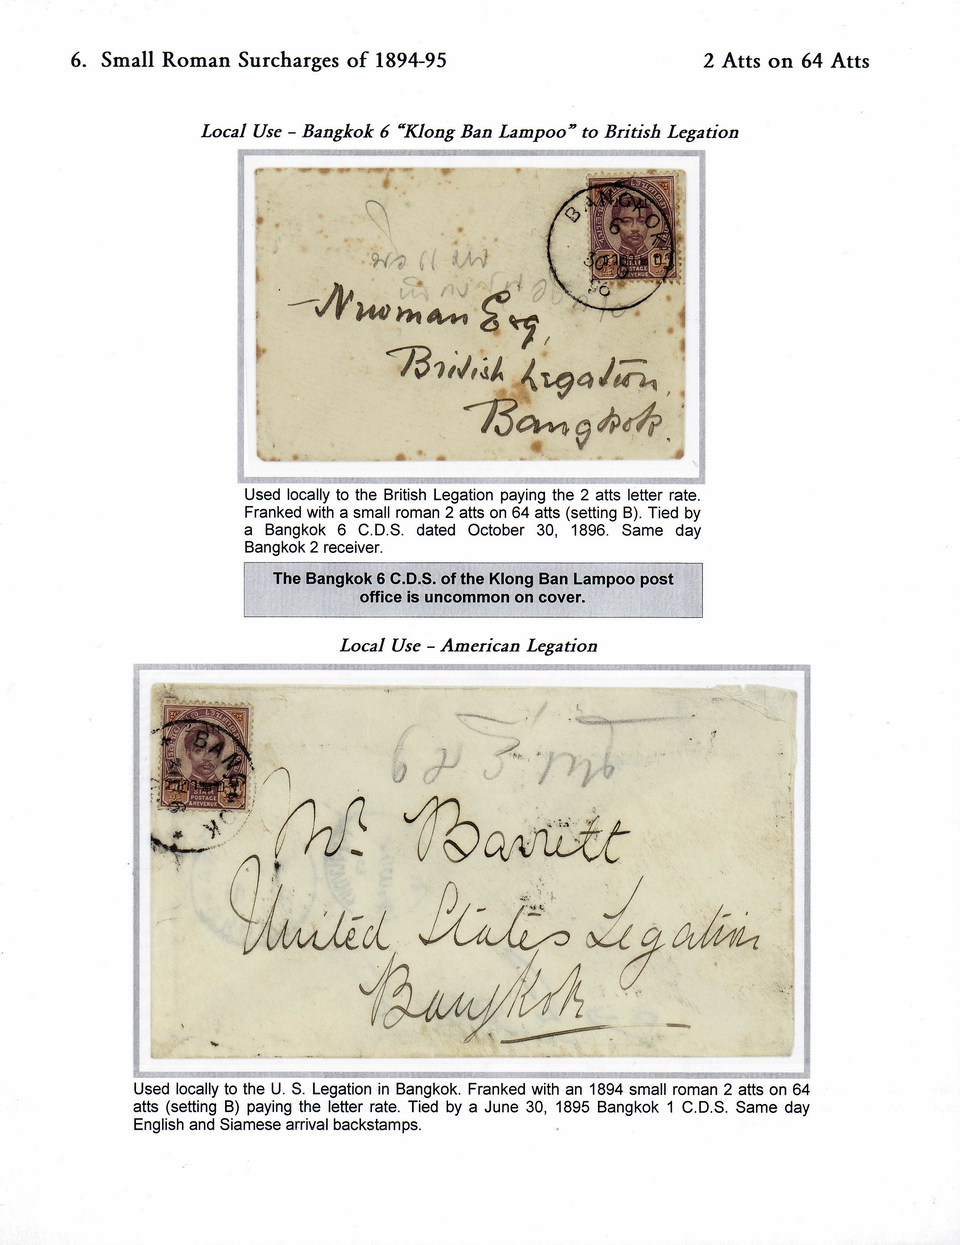 6. Small Roman Surcharges of 1894-95
2 Atts on 64 Atts
Local Use – Bangkok 6 “Klong Ban Lampoo” to British Legation
BANGKOK
6
30
96
POSTAGE
& REVENUE
Newman Esq,
British Legation,
Bangkok.
Used locally to the British Legation paying the 2 atts letter rate.
Franked with a small roman 2 atts on 64 atts (setting B). Tied by
a Bangkok 6 C.D.S. dated October 30, 1896. Same day
Bangkok 2 receiver.
The Bangkok 6 C.D.S. of the Klong Ban Lampoo post
office is uncommon on cover.
Local Use – American Legation
BANGKOK
SIAM
POSTAGE
& REVENUE
Mr. Barrett
United States Legation
Bangkok
Used locally to the U. S. Legation in Bangkok. Franked with an 1894 small roman 2 atts on 64
atts (setting B) paying the letter rate. Tied by a June 30, 1895 Bangkok 1 C.D.S. Same day
English and Siamese arrival backstamps.